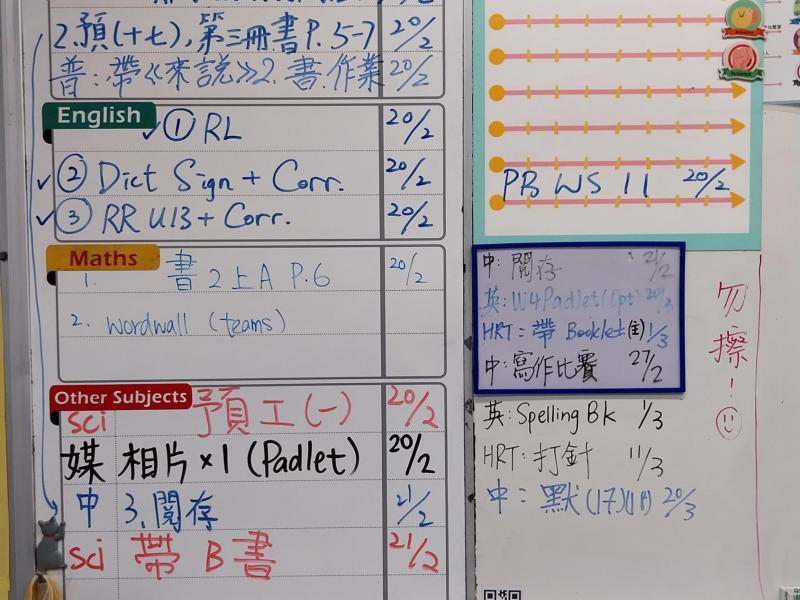 2.預(十七),第三冊書P.5-7 20/2
普:帶《來說》2.書.作業 20/2
English
① RL 20/2
② Dict Sign + Corr. 20/2
③ RR U13 + Corr. 20/2
Maths
1. 書2上A P.6 20/2
2. wordwall (teams)
Other Subjects
sci 預工(一) 20/2
媒 相片×1 (Padlet) 20/2
中 3.閱存 21/2
sci 帶B書 21/2
PB WS 11 20/2
中:閱存 21/2
英:U4 Padlet (Opt) 20/3
HRT:帶 Booklet 1/3
中:寫作比賽 27/2
英:Spelling Bk 1/3
HRT:打針 11/3
中:默(17)(18) 20/3
勿擦!